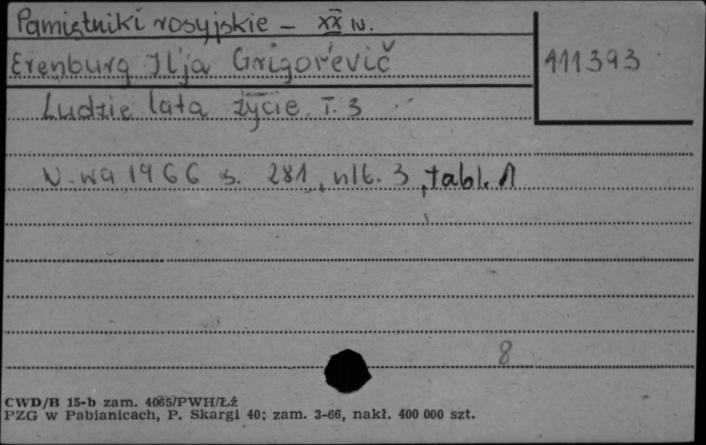 Pamiętniki rosyjskie - XX w.
Erenburg Il'ja Grigor'evič
411393
Ludzie lata życie. T. 3
W-wa 1966 s. 281, nlb. 3, tabl. 1
8
CWD/B 15-b zam. 4065/PWH/Łź
PZG w Pabianicach, P. Skargi 40; zam. 3-66, nakł. 400 000 szt.